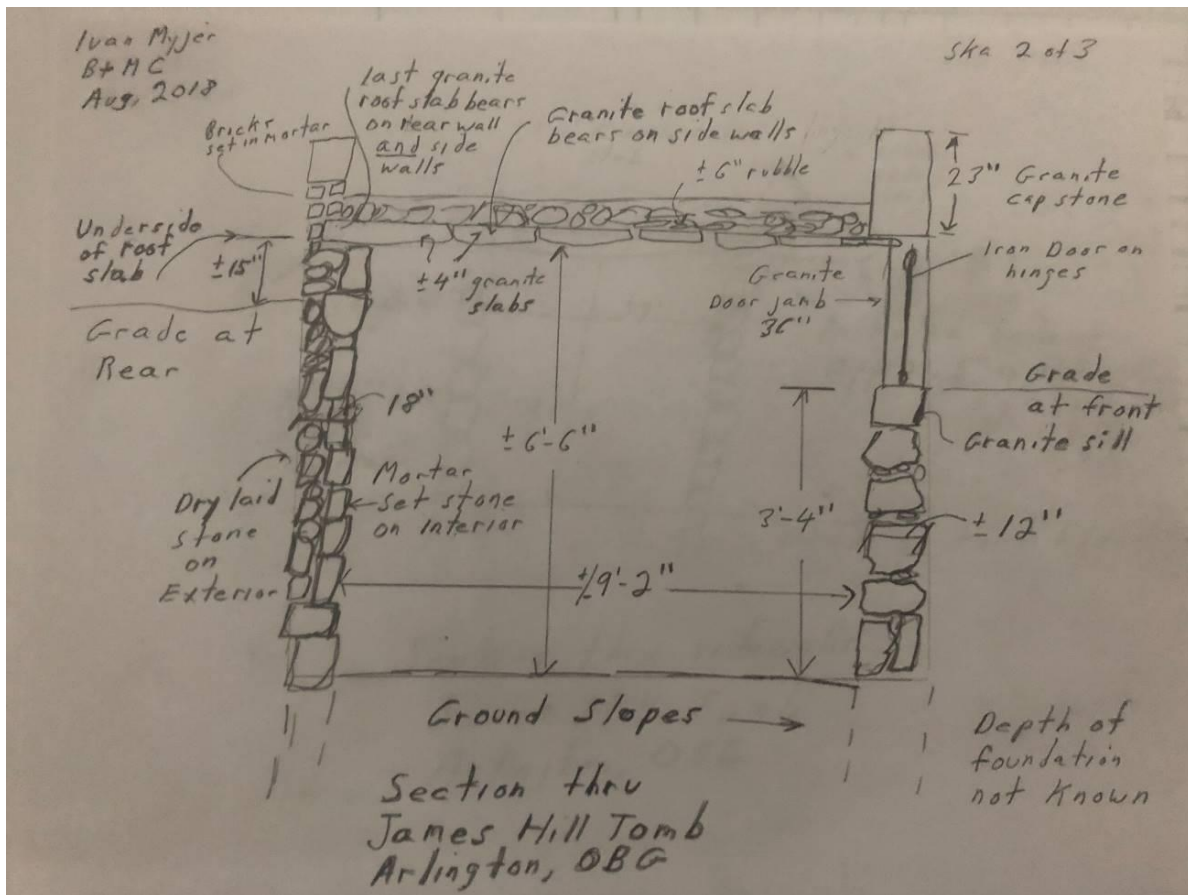 Ivan Myjer
B+MC
Aug, 2018
Ska 2 of 3
Bricks
set in mortar
last granite
roof slab bears
on rear wall
and side
walls
Granite roof slab
bears on side walls
± 6" rubble
23" Granite
cap stone
Underside
of roof
slab
±15"
±4" granite
slabs
Granite
Door jamb
36"
Iron Door on
hinges
Grade at
Rear
Grade
at front
Granite sill
18"
± 6'-6"
Dry laid
stone
on
Exterior
Mortar
set stone
on interior
3'-4"
± 12"
±/9'-2"
Ground Slopes
Depth of
foundation
not known
Section thru
James Hill Tomb
Arlington, OBG